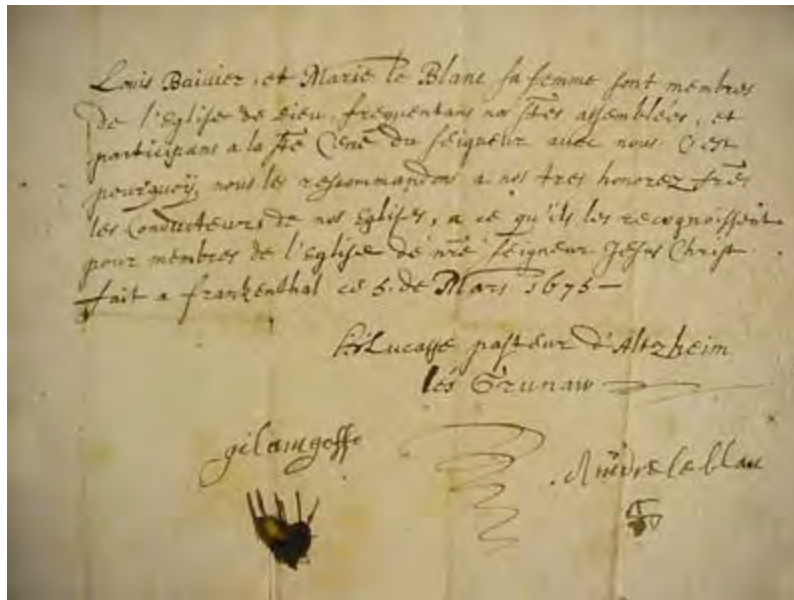 Louis Baivier, et Marie le Blanc sa femme sont membres
de l'Eglise de Dieu, frequentans nos stes assemblées, et
participans a la ste Cene du seigneur avec nous. C'est
pourquoÿ, nous les recommandons a nos tres honorez fres
les Conducteurs de nos Eglises, a ce qu'ils les recognoissent
pour membres de l'eglise de nre seigneur Jesus Christ.
fait a frankenthal ce 5. de Mars 1675
Lucasse pasteur d'Altzheim
lés Grunaw
gilamgoffe
Andre le blan